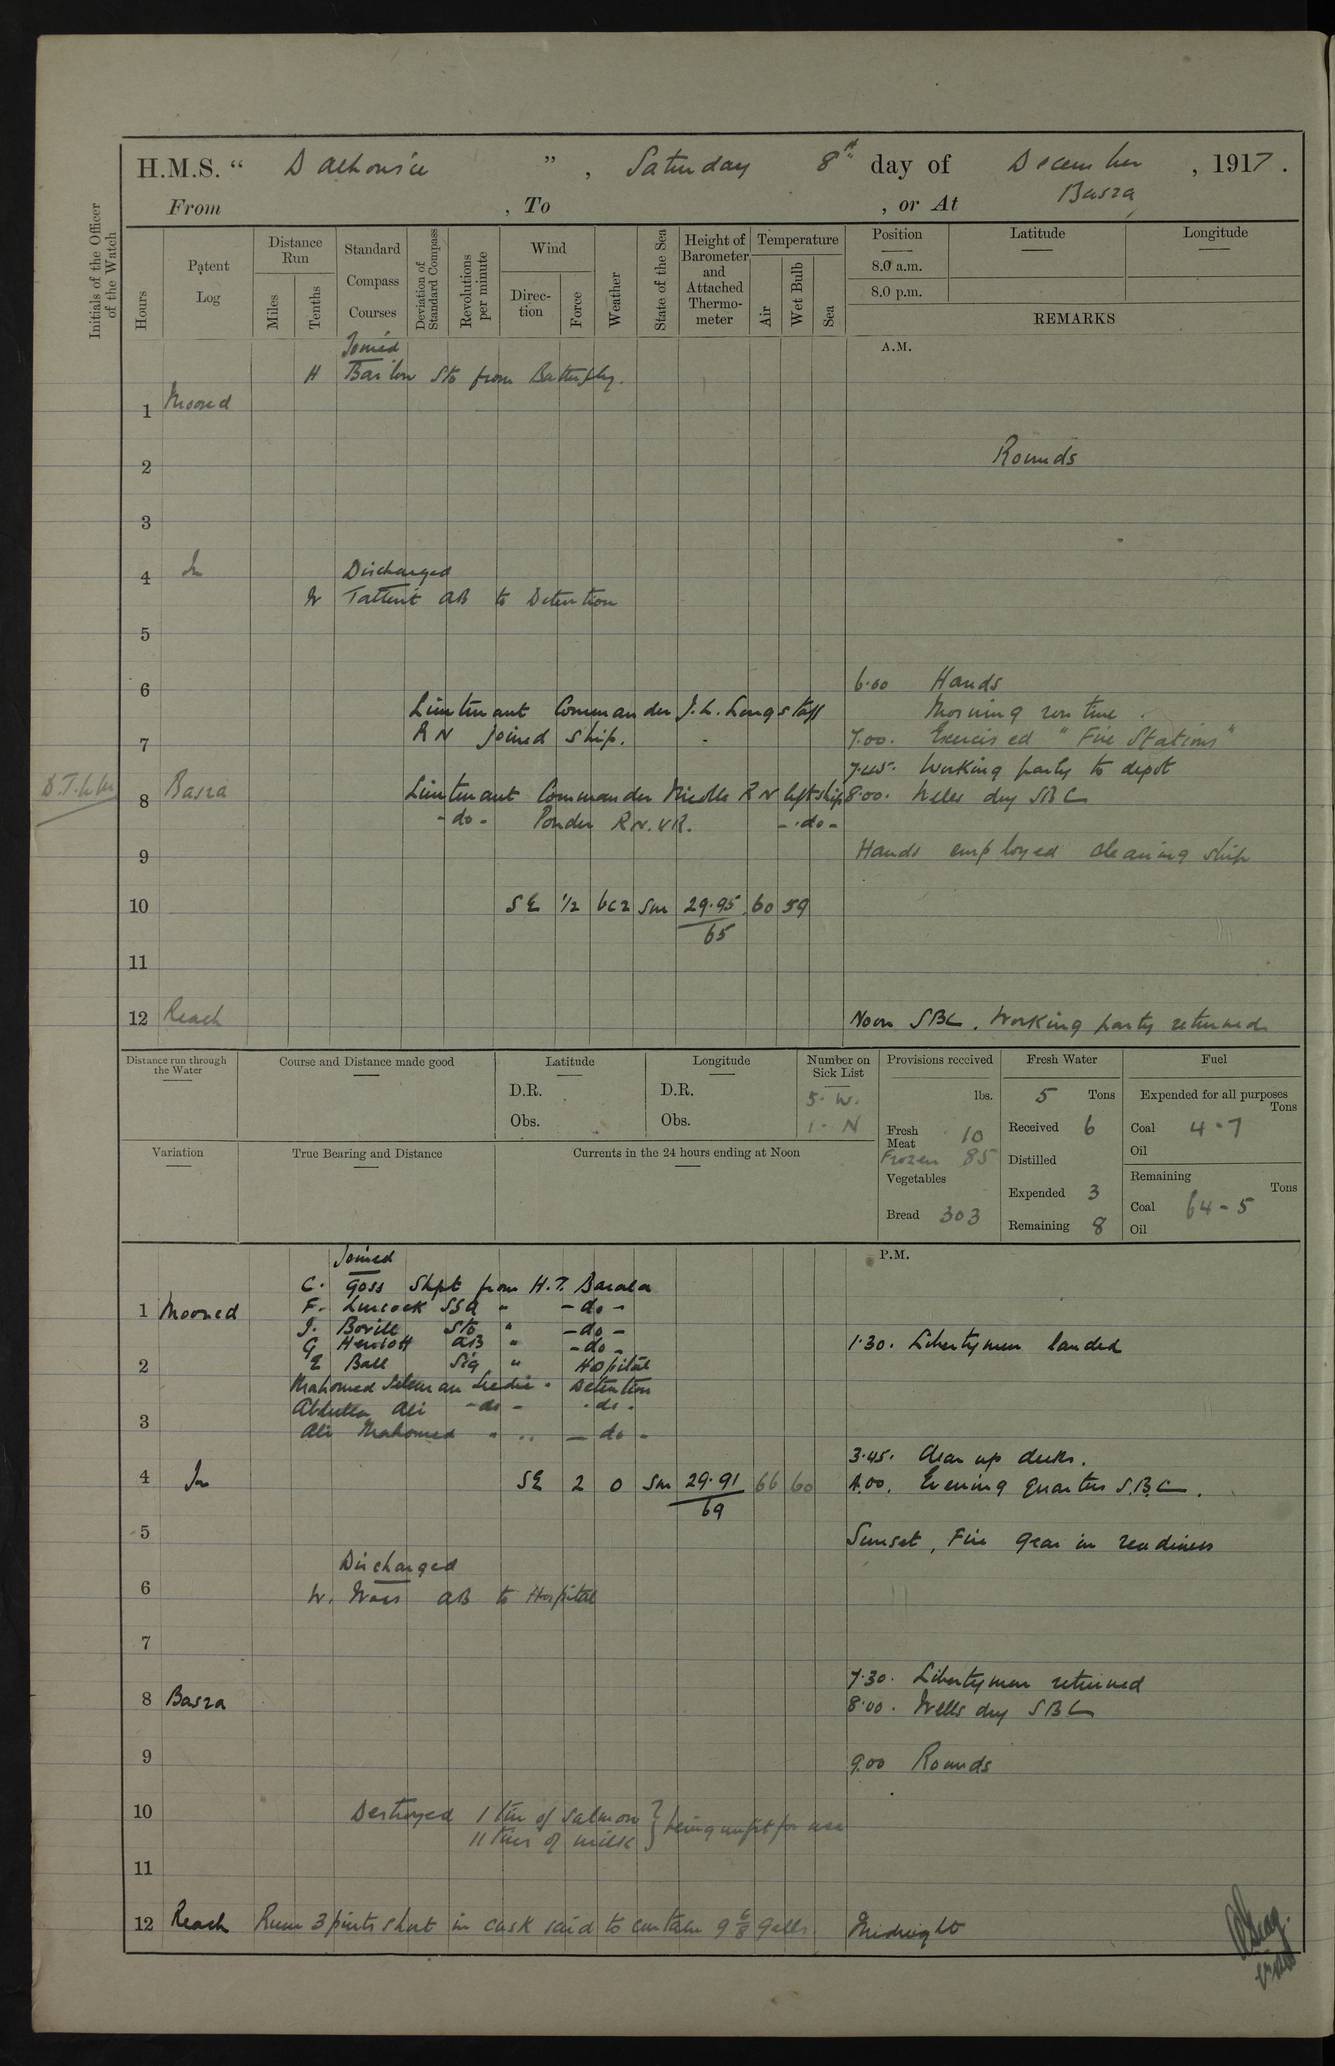 H.M.S. “ Dalhousie ” , Saturday 8th day of December , 1917 .
From , To , or At Basra
Initials of the Officer of the Watch
Hours
Patent Log
Distance Run
Miles
Tenths
Standard Compass Courses
Deviation of Standard Compass
Revolutions per minute
Wind
Direction
Force
Weather
State of the Sea
Height of Barometer and Attached Thermometer
Temperature
Air
Wet Bulb
Sea
Position
8.0 a.m.
8.0 p.m.
Latitude
Longitude
REMARKS
A.M.
Joined
H Sto from Butterfly.
1 Moored
2 Rounds
3
4 In Discharged
W AB to Detention
5
6 6.00 Hands
Lieutenant Commander J.L. Longstaff Morning routine.
RN joined ship.
7 7.00. Exercised "Fire Stations"
7.45. Working party to depot
8 Basra Lieutenant Commander Nicolls RN left ship 8.00. Wells dry SBC
-do- Ponder R.N.V.R. -do-
9 Hands employed cleaning ship
10 SE 1/2 bcz Sm 29.95 60 59
65
11
12 Reach Noon SBC. Working party returned
Distance run through the Water
Course and Distance made good
Latitude
D.R.
Obs.
Longitude
D.R.
Obs.
Number on Sick List
5. W.
1. N
Provisions received
lbs.
Fresh Meat 10
Frozen 85
Vegetables
Bread 303
Fresh Water
5 Tons
Received 6
Distilled
Expended 3
Remaining 8
Fuel
Expended for all purposes
Tons
Coal 4-7
Oil
Remaining
Tons
Coal 64-5
Oil
Variation
True Bearing and Distance
Currents in the 24 hours ending at Noon
P.M.
Joined
C. Goss Shpt from H.T. Barala
1 Moored F. SSA " -do-
J. Bovill Sto " -do-
G Herriott AB " -do- 1.30. Libertymen landed
2 E Ball Sig " Hospital
Mahomed Seedie " Detention
Abdulla Ali -do- -do-
3 Ali Mahomed " " -do-
3.45. Clear up decks.
4 In SE 2 o Sm 29.91 66 60 4.00. Evening quarters S.B.C.
69
5 Sunset, Fire gear in readiness
Discharged
6 W. AB to Hospital
7
7.30. Libertymen returned
8 Basra 8.00. Wells dry SBC
9 9.00 Rounds
10 Destroyed 1 tin of salmon } being unfit for use
11 tins of milk
11
12 Reach Rum 3 pints short in cask said to contain 9 6/8 galls. Midnight